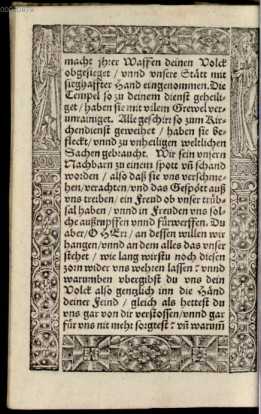 macht jhrer Waffen deinen Volck
obgesieget / vnnd vnsere Stått mit
sieghaffter Hand eingenommen. Die
Tempel so zu deinem dienst geheili-
get / haben sie mit vilem Grewel ver-
unrainiget. Alle geschirr so zum Kir-
chendienst geweihet / haben sie be-
fleckt / vnnd zu vnheiligen weltlichen
Sachen gebraucht. Wir sein vnsern
Nachbarn zu einem spott vñ schand
worden / also daß sie vns verschme-
hen / verachten / vnd das Gespött auß
vns treiben / ein Freud ob vnser trüb-
sal haben / vnnd in Freuden vns sol-
che außrupffen vnnd fürwerffen. Du
aber / O HErr / an dessen willen wir
hangen / vnnd an dem alles das vnser
stehet / wie lang wirstu noch diesen
zorn wider vns wehren lassen? vnnd
warumben vbergibst du vns dein
Volck also gentzlich inn die Händ
deiner Feind / gleich als hettest du
vns gar von dir verstossen / vnnd gar
für vns nit mehr sorgtest? vñ warum̃